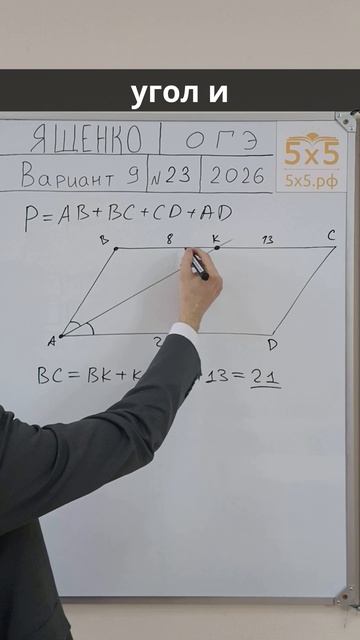 угол и
ЯЩЕНКО ОГЭ
Вариант 9 №23 2026
5x5
5x5.рф
P=AB+BC+CD+AD
B 8 K 13 C
A 2 D
BC=BK+K 13=21